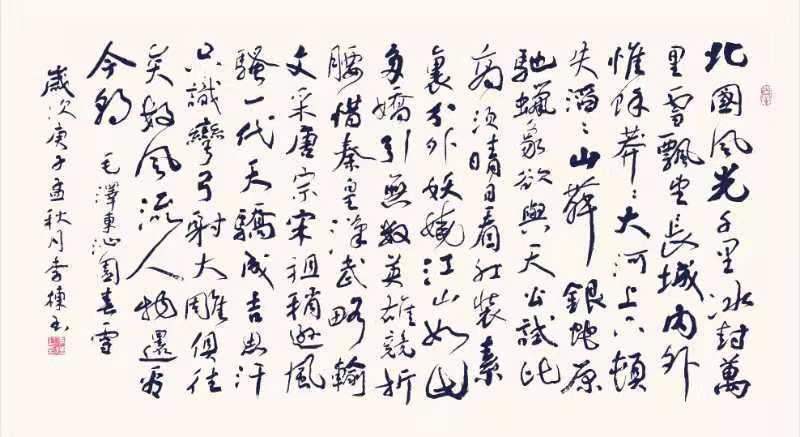 北國风光千里冰封萬
里雪飄望長城內外
惟餘莽〻大河上下頓
失滔〻山舞銀蛇原
馳蠟象欲與天公試比
高須晴日看紅裝素
裹分外妖嬈江山如此
多嬌引無數英雄競折
腰惜秦皇漢武略輸
文采唐宗宋祖稍遜風
騷一代天驕成吉思汗
只識彎弓射大雕俱往
矣數风流人物還看
今朝
毛澤東沁園春雪
歲次庚子孟秋月李棟書